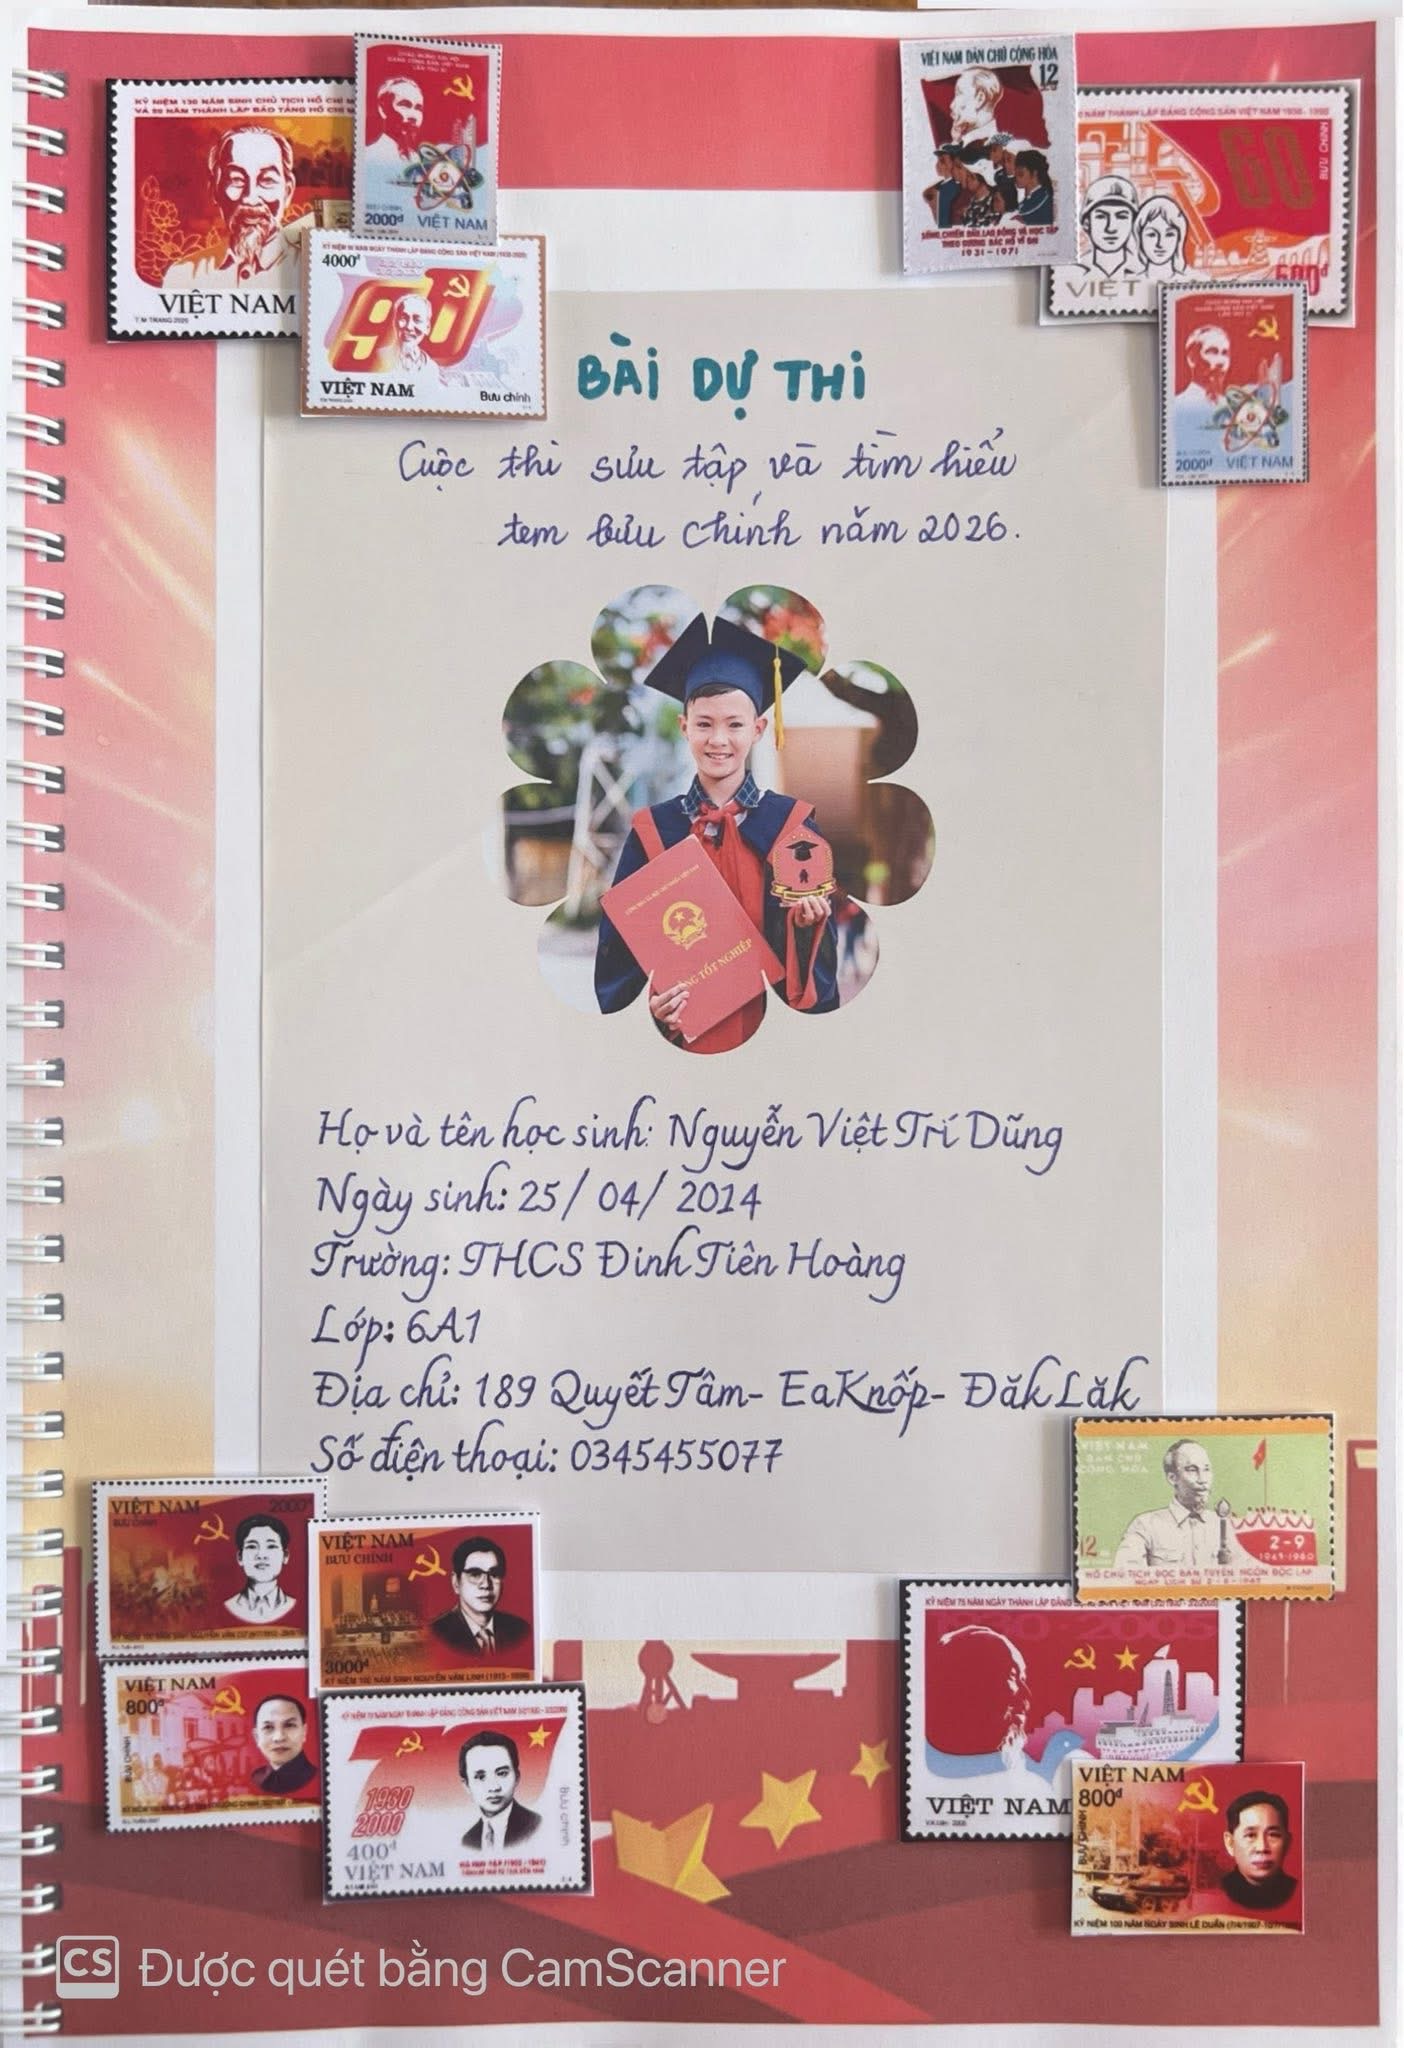 KỶ NIỆM 130 NĂM SINH CHỦ TỊCH HỒ CHÍ M
VÀ 50 NĂM THÀNH LẬP BẢO TÀNG HỒ CHÍ M
VIỆT NAM
2000đ VIỆT NAM
KỶ NIỆM 90 NĂM NGÀY THÀNH LẬP ĐẢNG CỘNG SẢN VIỆT NAM (1930-2020)
4000đ
90
VIỆT NAM
Bưu chính
VIỆT NAM DÂN CHỦ CỘNG HÒA
12
SỐNG, CHIẾN ĐẤU, LAO ĐỘNG VÀ HỌC TẬP
THEO GƯƠNG BÁC HỒ VĨ ĐẠI
1931 - 1971
NĂM THÀNH LẬP ĐẢNG CỘNG SẢN VIỆT NAM 1930 - 1990
60
BƯU CHÍNH
600đ
VIỆT
2000đ VIỆT NAM
BÀI DỰ THI
Cuộc thi sưu tập và tìm hiểu
tem bưu chính năm 2026.
CÔNG TỐT NGHIỆP
Họ và tên học sinh: Nguyễn Việt Trí Dũng
Ngày sinh: 25/ 04/ 2014
Trường: THCS Đinh Tiên Hoàng
Lớp: 6A1
Địa chỉ: 189 Quyết Tâm- EaKnốp- Đăk Lăk
Số điện thoại: 0345455077
VIỆT NAM
2000đ
BƯU CHÍNH
VIỆT NAM
BƯU CHÍNH
3000đ
KỶ NIỆM 100 NĂM SINH NGUYỄN VĂN LINH (1915-1998)
VIỆT NAM
800đ
BƯU CHÍNH
KỶ NIỆM 70 NĂM NGÀY THÀNH LẬP ĐẢNG CỘNG SẢN VIỆT NAM 3/2/1930 - 3/2/2000
1930
2000
400đ
VIỆT NAM
Bưu chính
VIỆT NAM
DÂN CHỦ
CỘNG HÒA
12
2-9
1945-1960
HỒ CHỦ TỊCH ĐỌC BẢN TUYÊN NGÔN ĐỘC LẬP
NGÀY LỊCH SỬ 2-9-1945
KỶ NIỆM 75 NĂM NGÀY THÀNH LẬP ĐẢNG
1930 2005
VIỆT NAM
VIỆT NAM
800đ
BƯU CHÍNH
KỶ NIỆM 100 NĂM NGÀY SINH LÊ DUẨN
CS Được quét bằng CamScanner